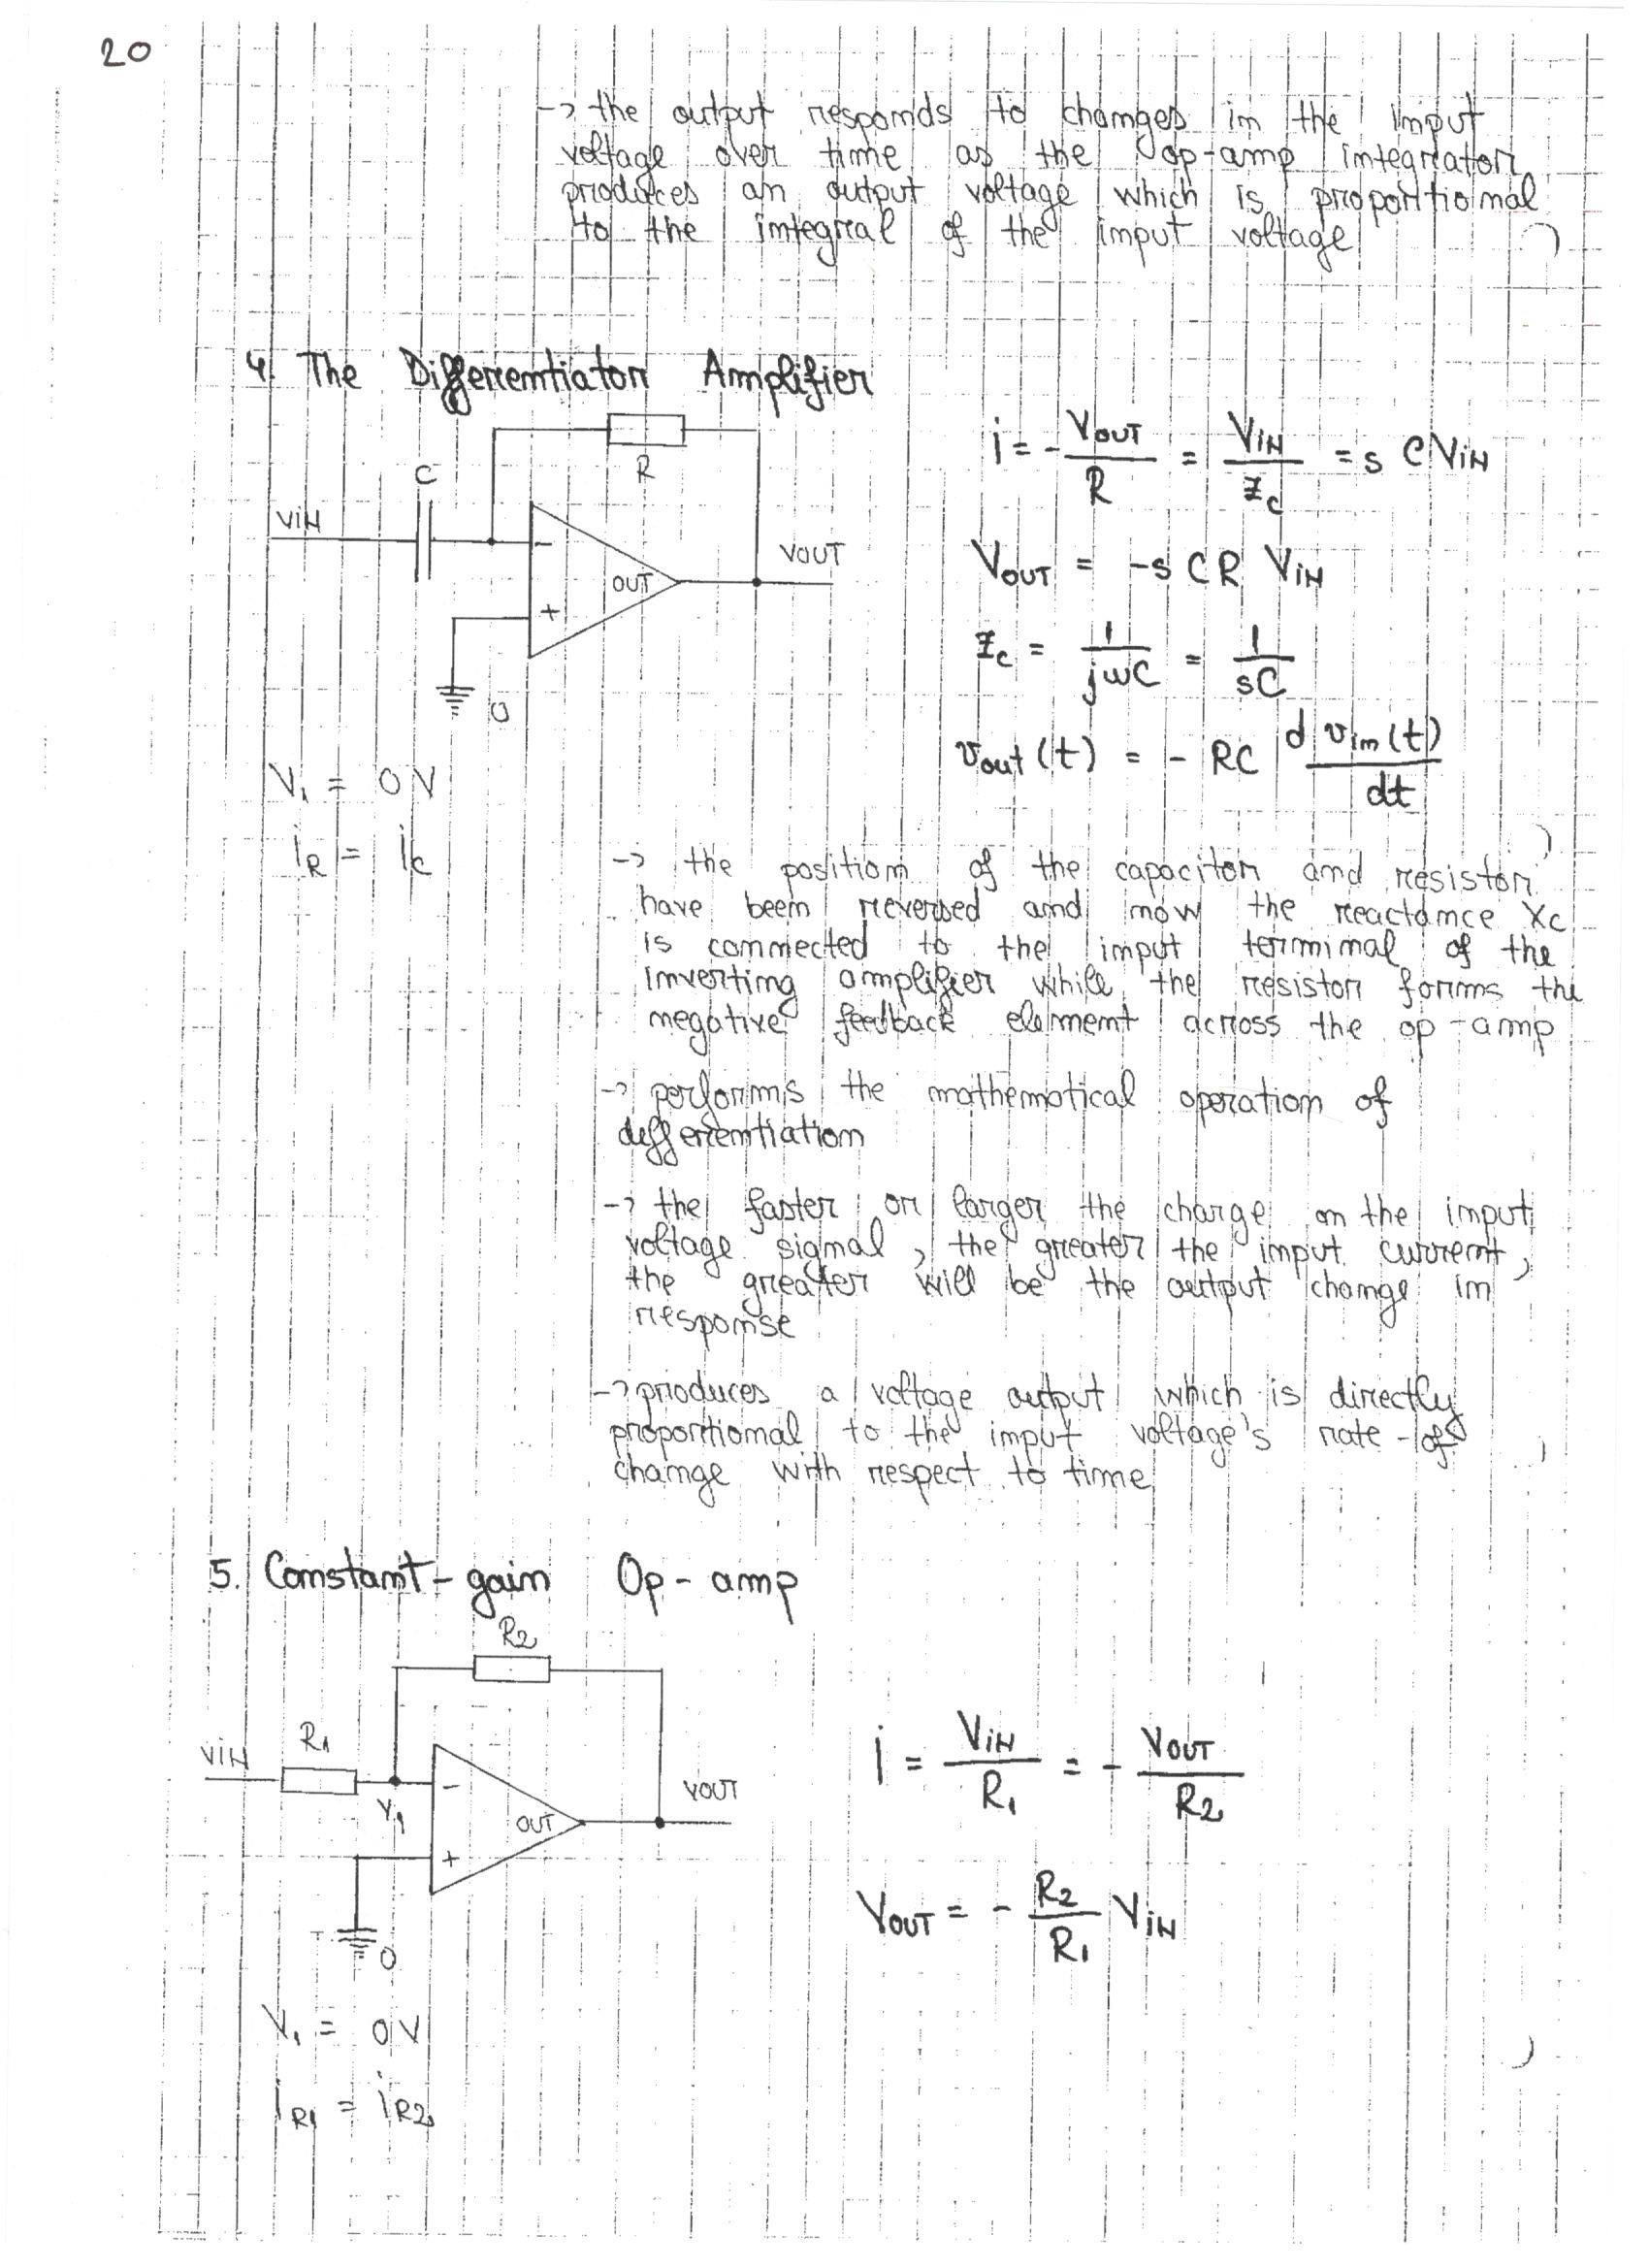 20
-> the output responds to changes in the input
voltage over time as the op-amp integrator
produces an output voltage which is proportional
to the integral of the input voltage
4. The Differentiator Amplifier
R
C
VIN
-
VOUT
OUT
+
0
V₁ = 0V
iR = ic
i = - VOUT / R = VIN / Zc = s C VIN
VOUT = -s C R VIN
Zc = 1 / jωC = 1 / sC
vout(t) = - RC d vin(t) / dt
-> the position of the capacitor and resistor
have been reversed and now the reactance Xc
is connected to the input terminal of the
inverting amplifier while the resistor forms the
negative feedback element across the op-amp
-> performs the mathematical operation of
differentiation
-> the faster or larger the charge on the input
voltage signal, the greater the input current,
the greater will be the output change in
response
-> produces a voltage output which is directly
proportional to the input voltage's rate-of
change with respect to time
5. Constant-gain Op-amp
R2
R1
VIN
-
V1
VOUT
OUT
+
0
V₁ = 0V
iR1 = iR2
i = VIN / R1 = - VOUT / R2
VOUT = - R2 / R1 VIN